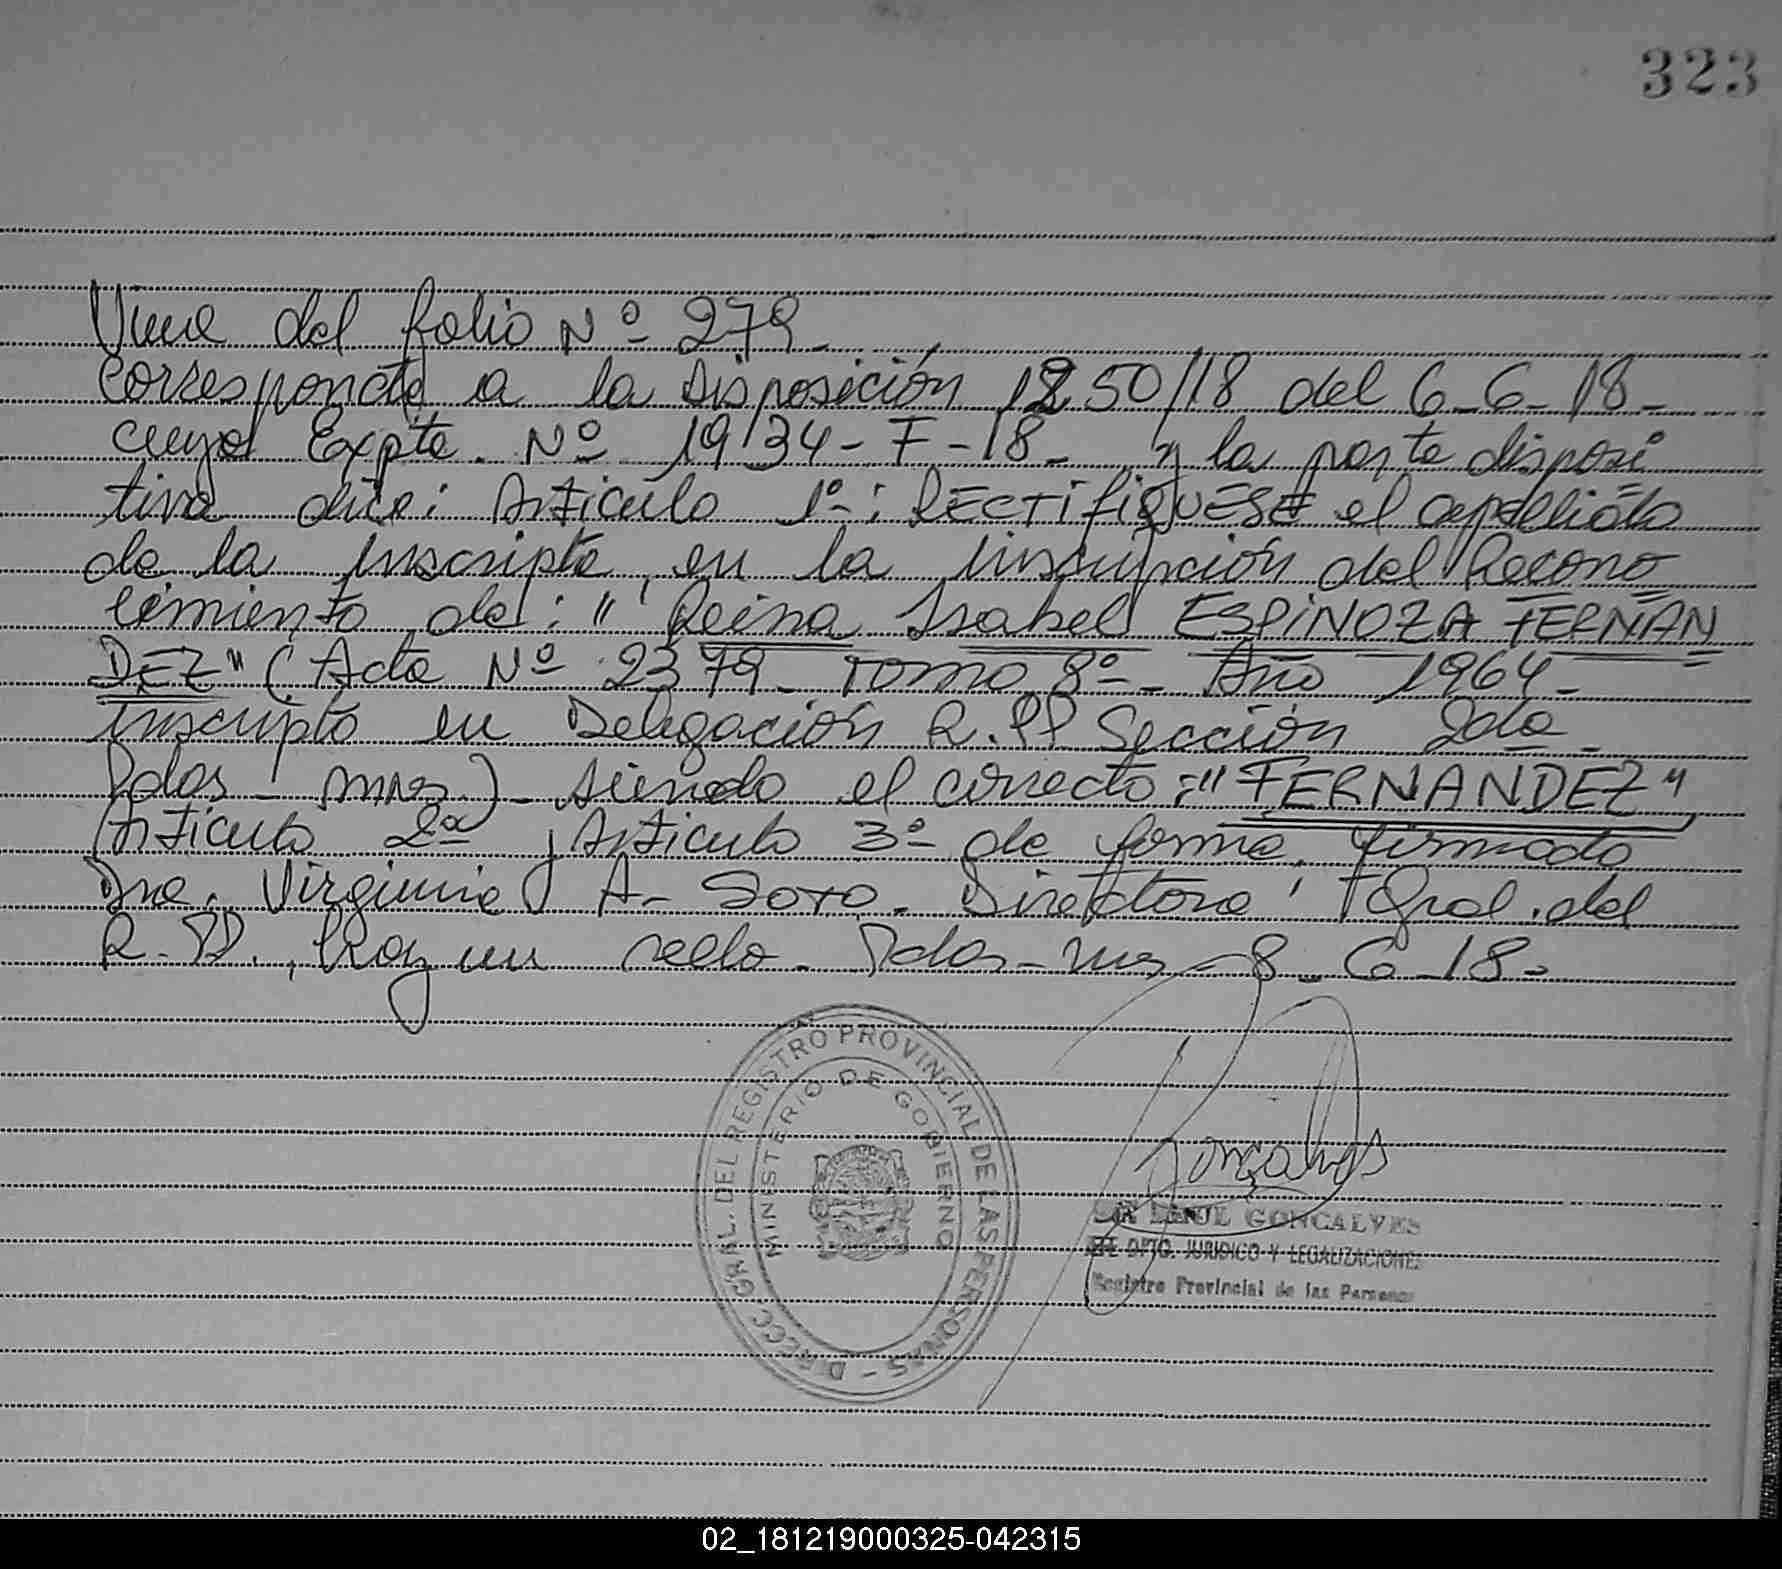 323
Viene del folio Nº 279.
Corresponde a la Disposición 1250/18 del 6-6-18-
cuyo Expte. Nº 19134-F-18- y la parte disposi
tiva dice: Artículo 1º: RECTIFIQUESE el apellido
de la inscripta, en la inscripción del Recono
cimiento de: "Reina Isabel ESPINOZA FERNAN
DEZ" (Acta Nº 2379- Tomo 8º- Año 1964-
inscripto en Delegación R.PP Sección 2da-
Pdas - Mnes.)- siendo el correcto: "FERNANDEZ"
Artículo 2º y Artículo 3º de forma, firmado
Dra. Virginia A- Soto. Directora Gral. del
R.PP., hay un sello. Pdas-Mnes-8-6-18-
DIRECC. GRAL. DEL REGISTRO PROVINCIAL DE LAS PERSONAS -
MINISTERIO DE GOBIERNO
Gonçalves
RAUL GONCALVES
DPTO. JURIDICO Y LEGALIZACIONES
Registro Provincial de las Personas
02_181219000325-042315